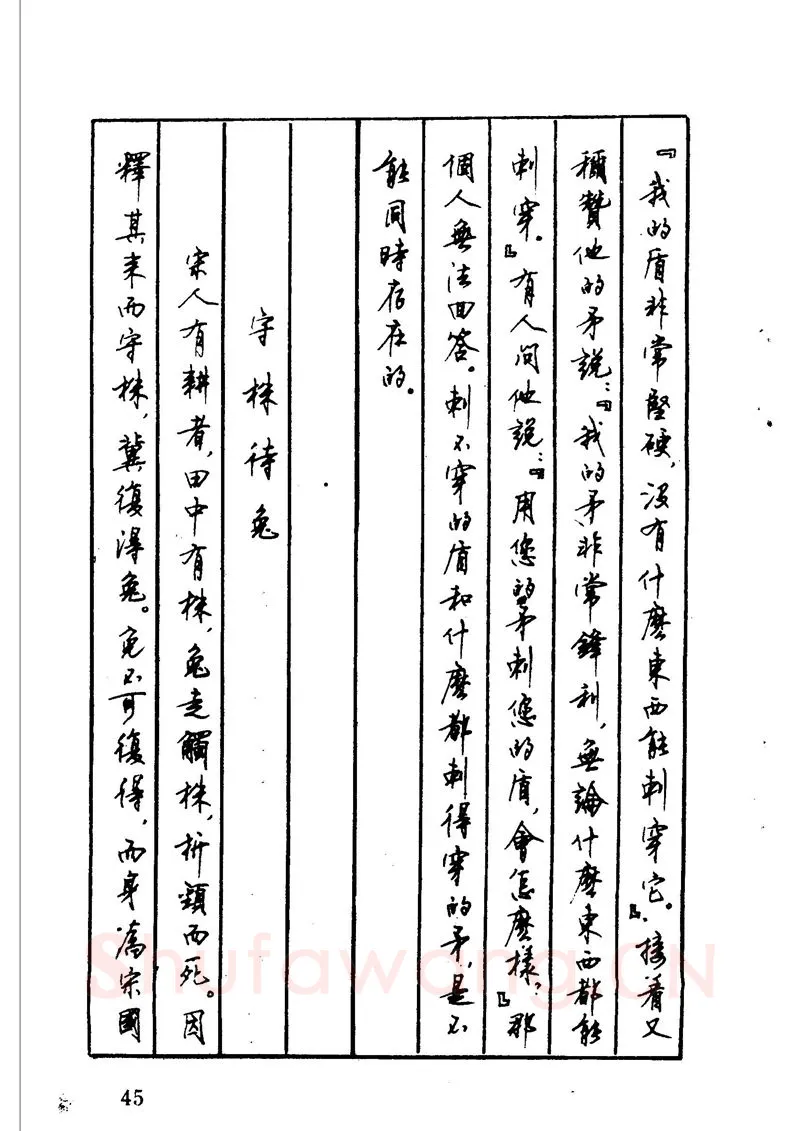 『我的盾非常堅硬，沒有什麽東西能刺穿它。』接着又
稱贊他的矛説：『我的矛非常鋒利，無論什麽東西都能
刺穿。』有人問他説：『用您的矛刺您的盾，會怎麽樣？』那
個人無法回答。刺不穿的盾和什麽都刺得穿的矛，是不
能同時存在的。
守株待兔
宋人有耕者，田中有株，兔走觸株，折頸而死。因
釋其耒而守株，冀復得兔。兔不可復得，而身爲宋國
Shufawang.CN
45